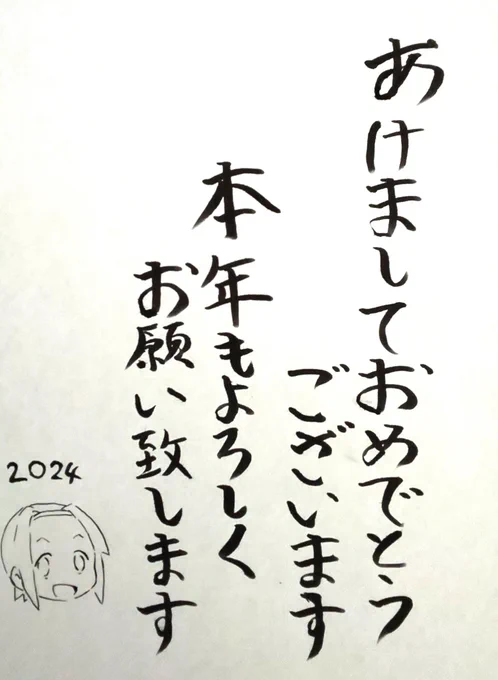 あけましておめでとう
ございます
本年もよろしく
お願い致します
2024